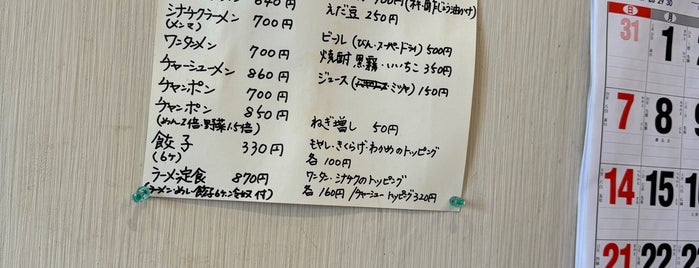 640円
シナチクラーメン 700円
(メンマ)
ワンタンメン 700円
チャーシューメン 860円
チャンポン 700円
チャンポン 850円
(めん2倍・野菜1.5倍)
餃子 330円
(6ケ)
ラーメン定食 870円
えだ豆 250円
ビール (びん・スーパードライ) 500円
焼酎 黒霧・いいちこ 350円
ジュース ( ミツヤ) 150円
ねぎ増し 50円
もやし・きくらげ・わかめのトッピング
各100円
ワンタン・シナチクのトッピング
各160円/チャーシュートッピング320円
日 月
31 1
7 8
14 15
21 22